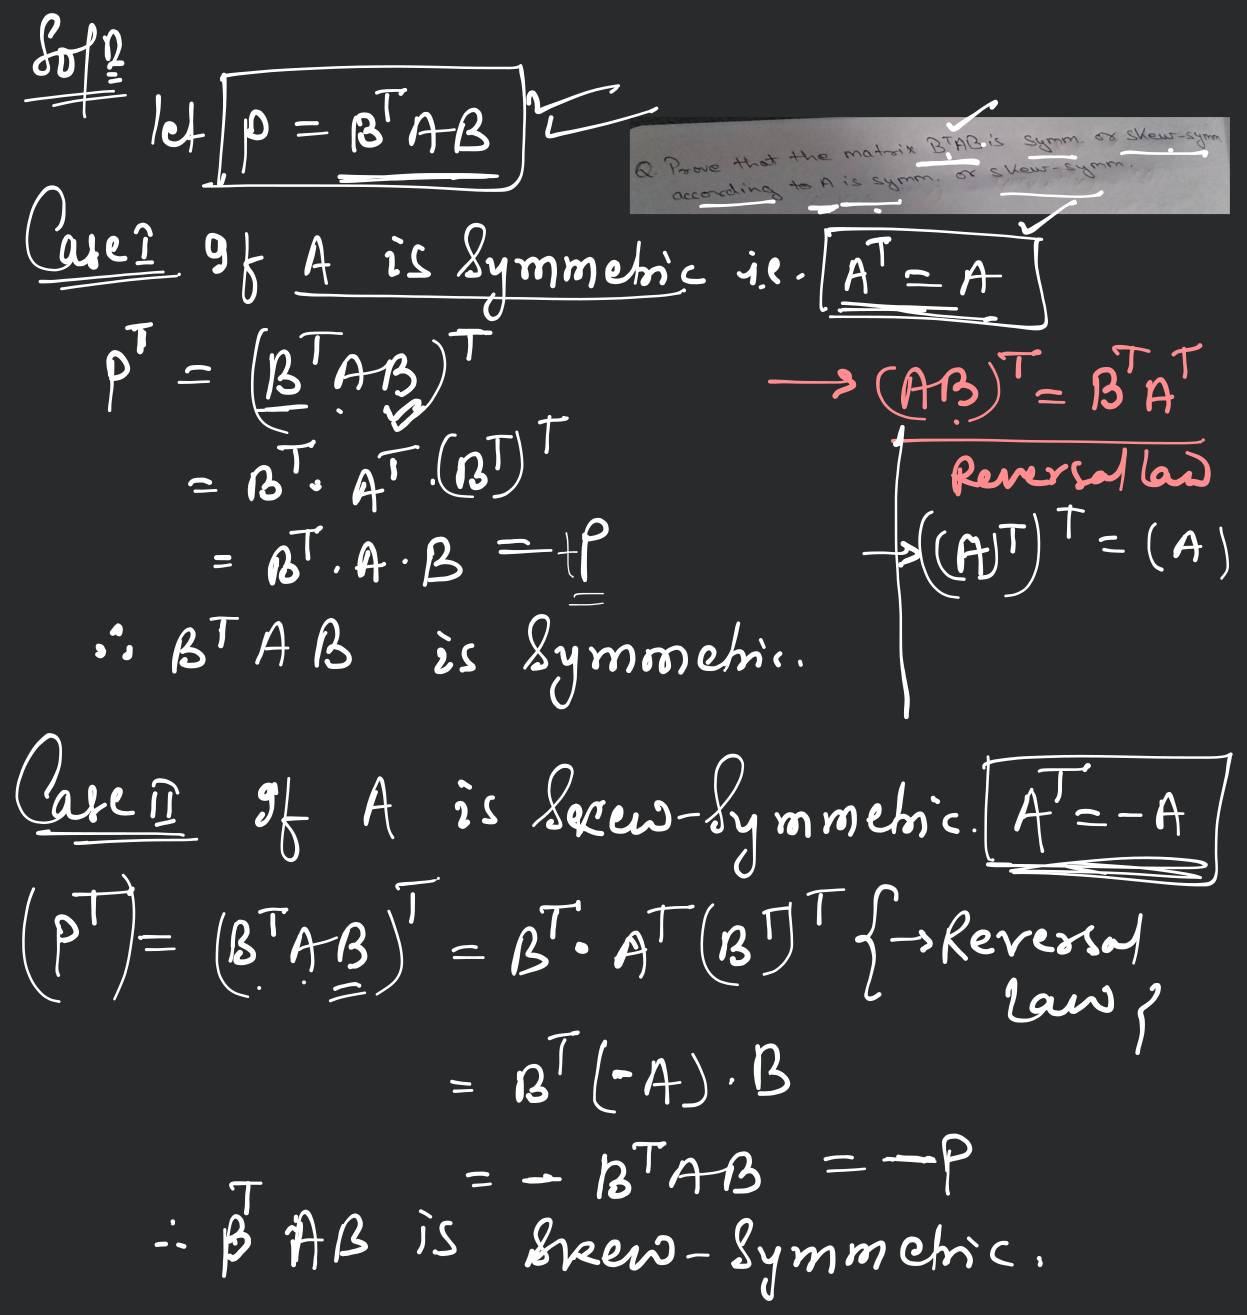 Sol^n
let P = B^T AB
Q. Prove that the matrix B^T AB is symm. or skew-symm
according to A is symm. or skew-symm.
Case I If A is Symmetric i.e. A^T = A
P^T = (B^T AB)^T
= B^T . A^T . (B^T)^T
= B^T . A . B = +P
∴ B^T A B is Symmetric.
→ (AB)^T = B^T A^T
Reversal law
→ ((A)^T)^T = (A)
Case II If A is Skew-Symmetric. A^T = -A
(P^T) = (B^T AB)^T = B^T . A^T (B^T)^T {→ Reversal
Law}
= B^T (-A) . B
= - B^T AB = -P
∴ B^T AB is Skew-Symmetric.